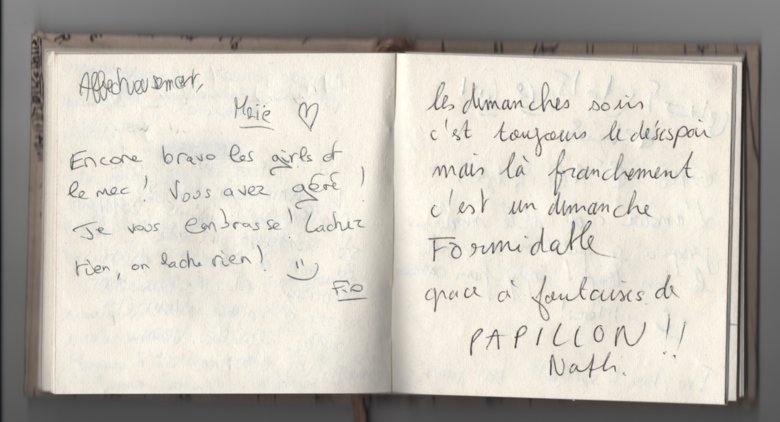 Affectueusement,
Maïe ♡
Encore bravo les girls et
le mec ! Vous avez géré !
Je vous embrasse ! Lachez
rien, on lache rien !
Flo
les dimanches soirs
c'est toujours le désespoir
mais là franchement
c'est un dimanche
Formidable
grace à fantaisies de
PAPILLON !!
Nath.